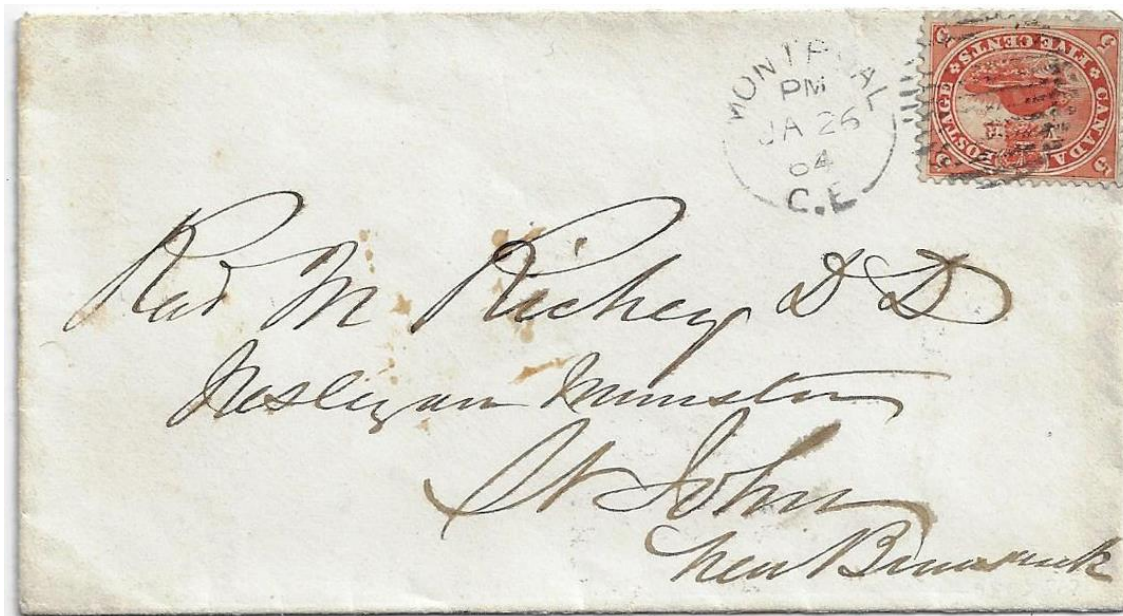 MONTREAL
PM
JA 26
64
C.E
CANADA POSTAGE
FIVE CENTS
5 5 5 5
Rev M Richey D D
Wesleyan Minister
St John
New Brunswick